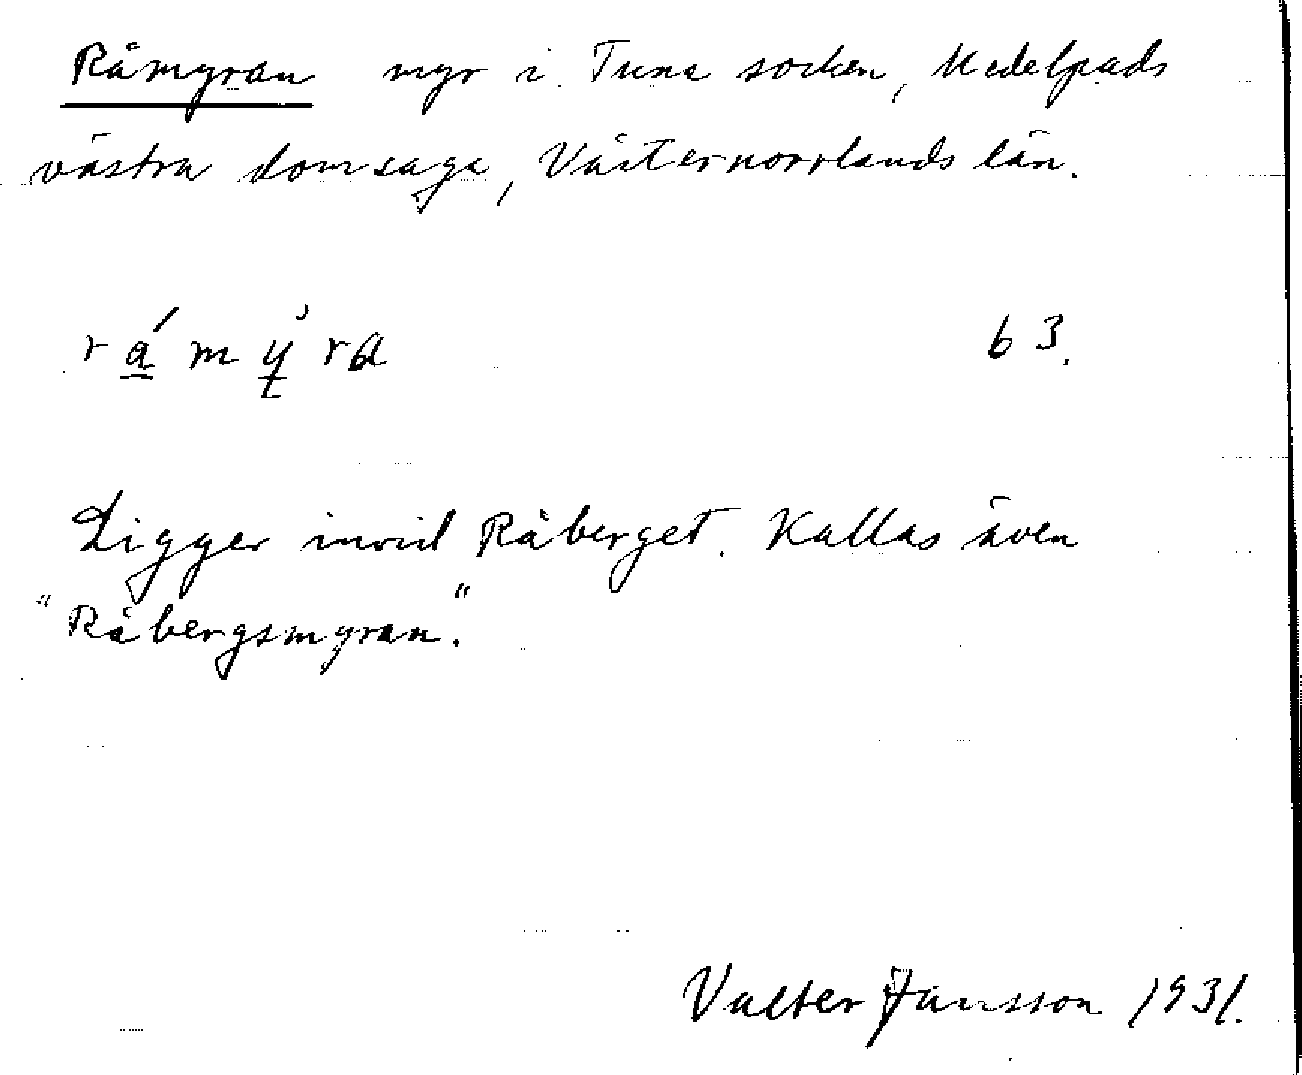 Råmyran myr i Tuna socken, Medelpads
västra domsaga, Västernorrlands län.
rá̱my̱ra 63.
Ligger invid Råberget. Kallas även
"Råbergsmyran."
Valter Jansson 1931.